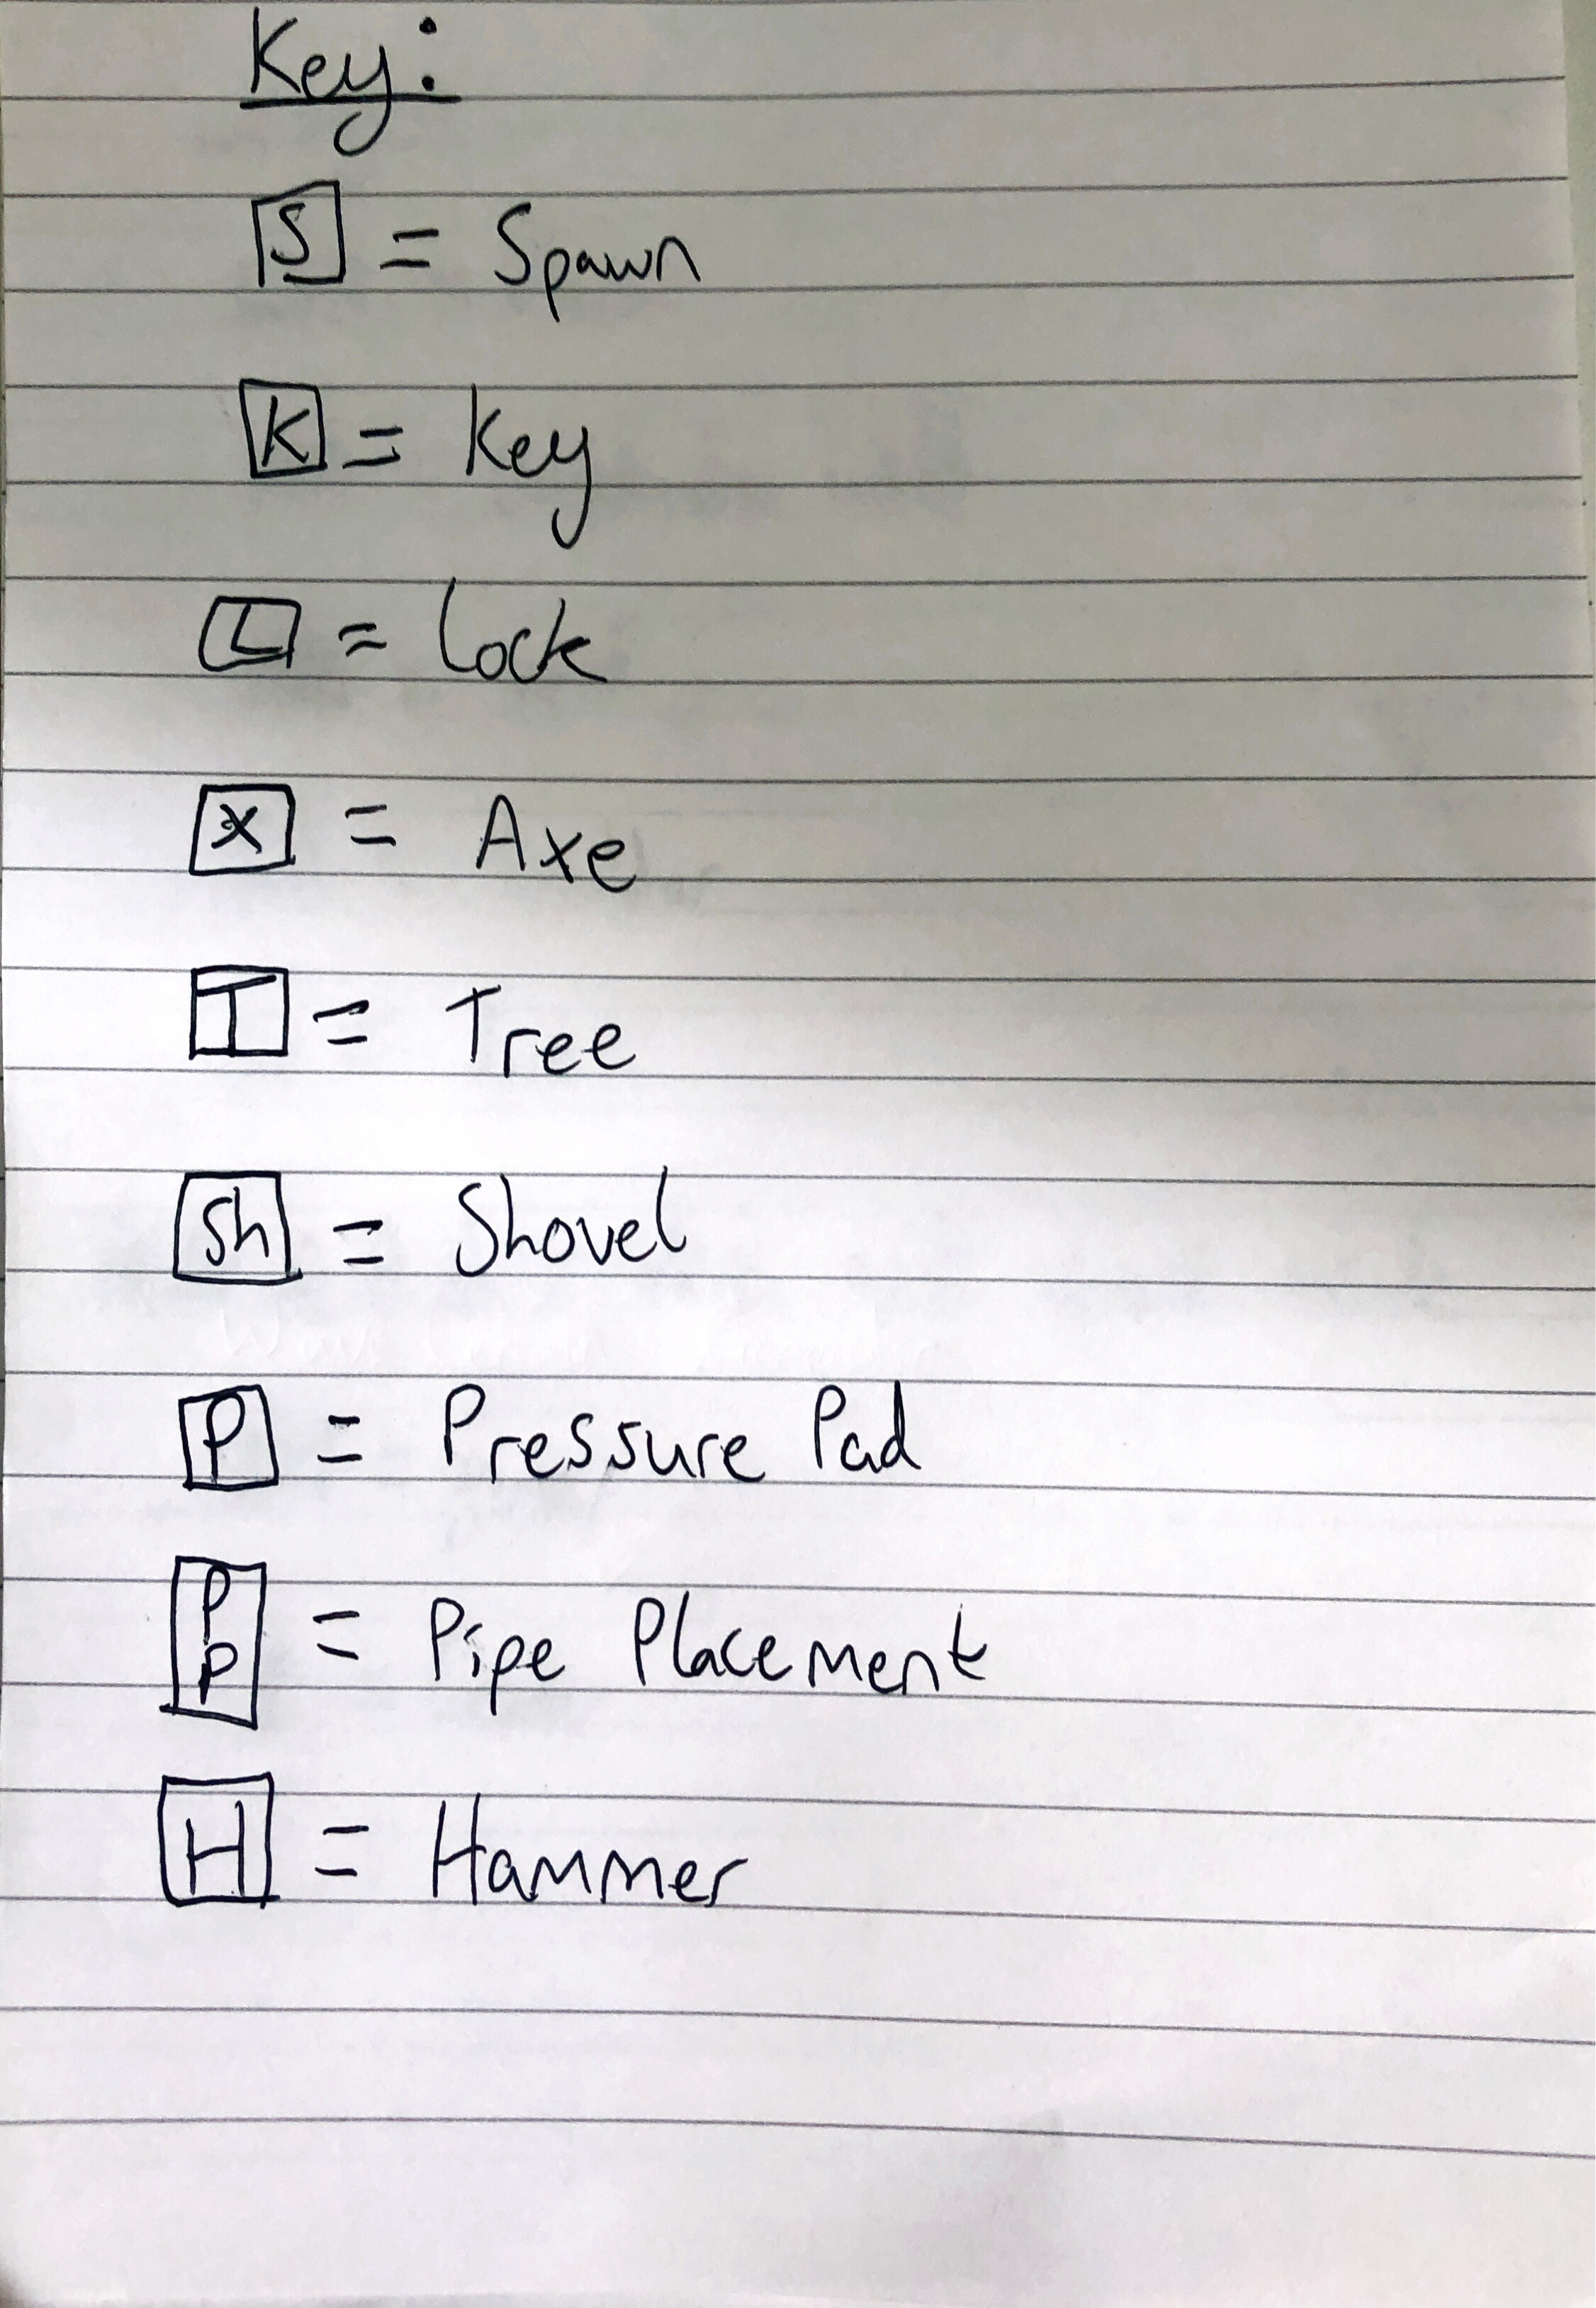 Key:
S = Spawn
K = Key
L = Lock
X = Axe
T = Tree
Sh = Shovel
P = Pressure Pad
PP = Pipe Placement
H = Hammer